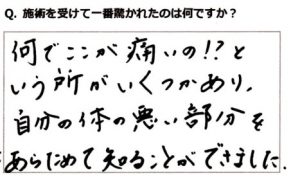 Q. 施術を受けて一番驚かれたのは何ですか？
何でここが痛いの!?と
いう所がいくつかあり、
自分の体の悪い部分を
あらためて知ることができました。